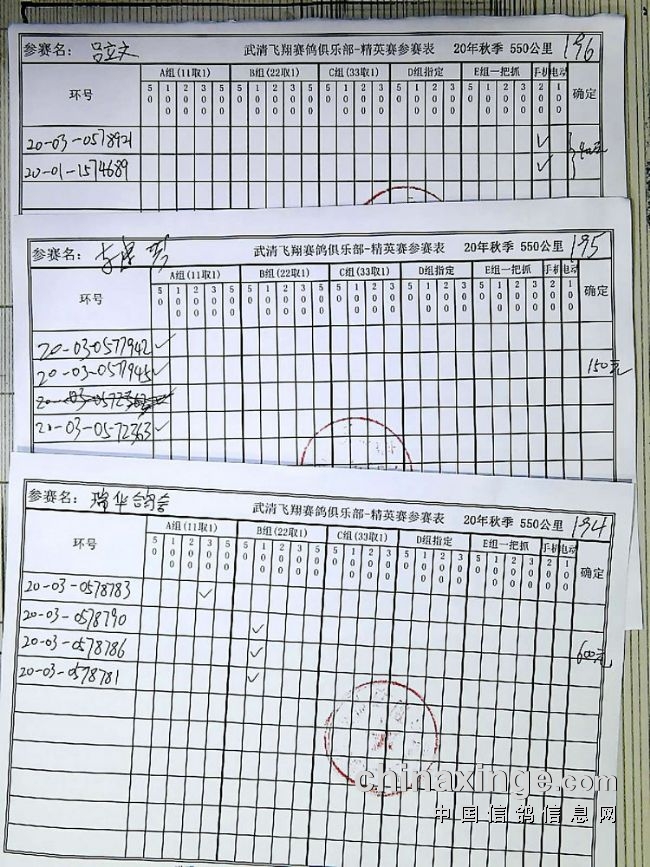 参赛名: 吕立文 武清飞翔赛鸽俱乐部-精英赛参赛表 20年秋季 550公里 196
环号 A组(11取1) B组(22取1) C组(33取1) D组指定 E组一把抓 手机 电动 确定
50 100 200 300 500 50 100 200 300 500 50 100 200 300 500 50 100 200 300 50 100 200 300 500 200 100
20-03-0578921 ✓
20-01-1574689 ✓
参赛名: 武清飞翔赛鸽俱乐部-精英赛参赛表 20年秋季 550公里 195
环号 A组(11取1) B组(22取1) C组(33取1) D组指定 E组一把抓 手机 电动 确定
50 100 200 300 500 50 100 200 300 500 50 100 200 300 500 50 100 200 300 50 100 200 300 500 200 100
20-03-0577942 ✓
20-03-0577945 ✓ 150元
20-03-0572362
20-03-0572363 ✓
参赛名: 瑞华鸽舍 武清飞翔赛鸽俱乐部-精英赛参赛表 20年秋季 550公里 194
环号 A组(11取1) B组(22取1) C组(33取1) D组指定 E组一把抓 手机 电动 确定
50 100 200 300 500 50 100 200 300 500 50 100 200 300 500 50 100 200 300 50 100 200 300 500 200 100
20-03-0578783 ✓
20-03-0578790 ✓
20-03-0578786 ✓ 600元
20-03-0578781 ✓
chinaxinge.com
中国信鸽信息网